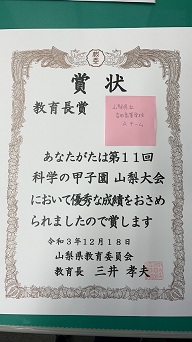 賞状
教育長賞
山梨県立
吉田高等学校
Aチーム
あなたがたは第11回
科学の甲子園 山梨大会
において優秀な成績をおさめ
られましたので賞します
令和3年12月18日
山梨県教育委員会
教育長 三井 孝夫